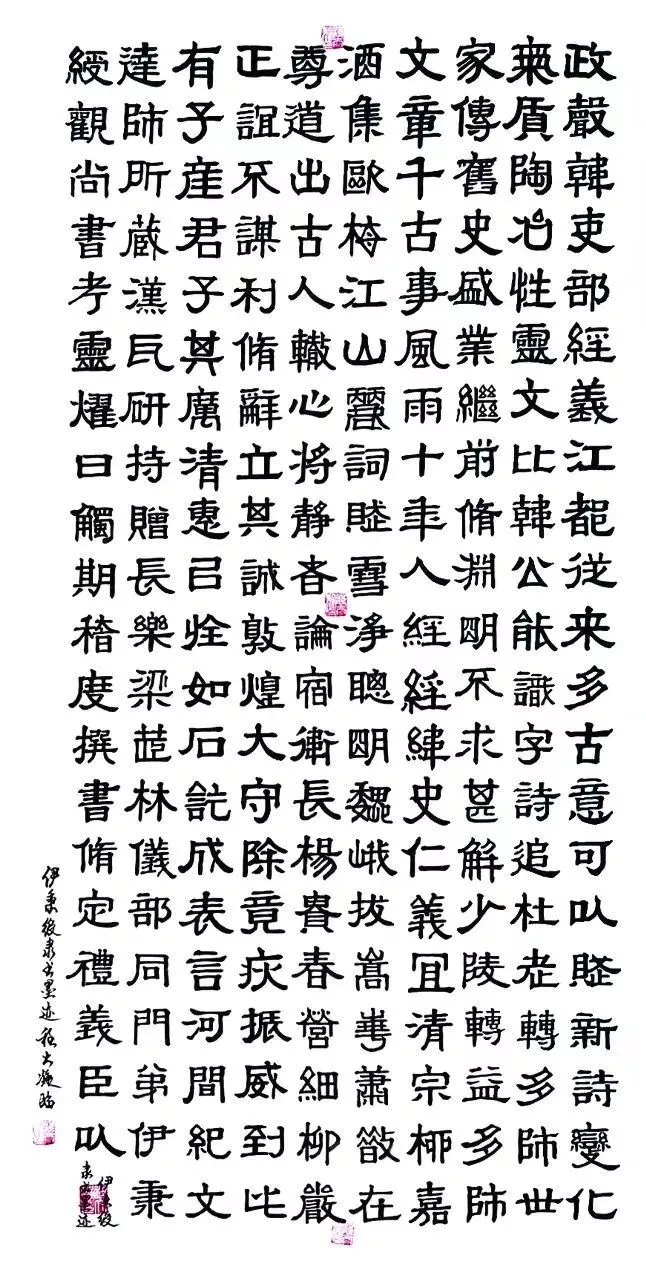 政聲韓吏部經義江都從来多古意可以賦新詩變化
炁質陶冶性靈文比韓公能識字詩追杜老轉多師世
家傳舊史盛業繼前脩淵明不求甚解少陵轉益多師
文章千古事風雨十年人經經緯史仁義冝清宗柳嘉
酒集歐梅江山麗詞賦雪淨聰明魏峨拔嵩華蕭散在
尊道出古人轍心將靜者論宿衛長楊賁春營細柳嚴
正誼不謀利脩辭立其誠敦煌大守除竟疢振威到比
有子產君子其厲清惠以恮如石託成表言河間紀文
達師所藏漢瓦研持贈長樂梁茝林儀部同門弟伊秉
綬觀尚書考靈燿曰觸期稽度撰書脩定禮義臣以
伊秉绶隶书墨迹
伊秉绶隶书墨迹